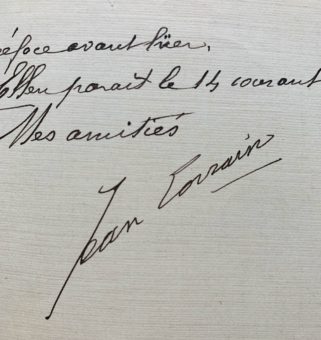 préface avant hier,
paraît le 14 courant
Mes amitiés
Jean Lorrain